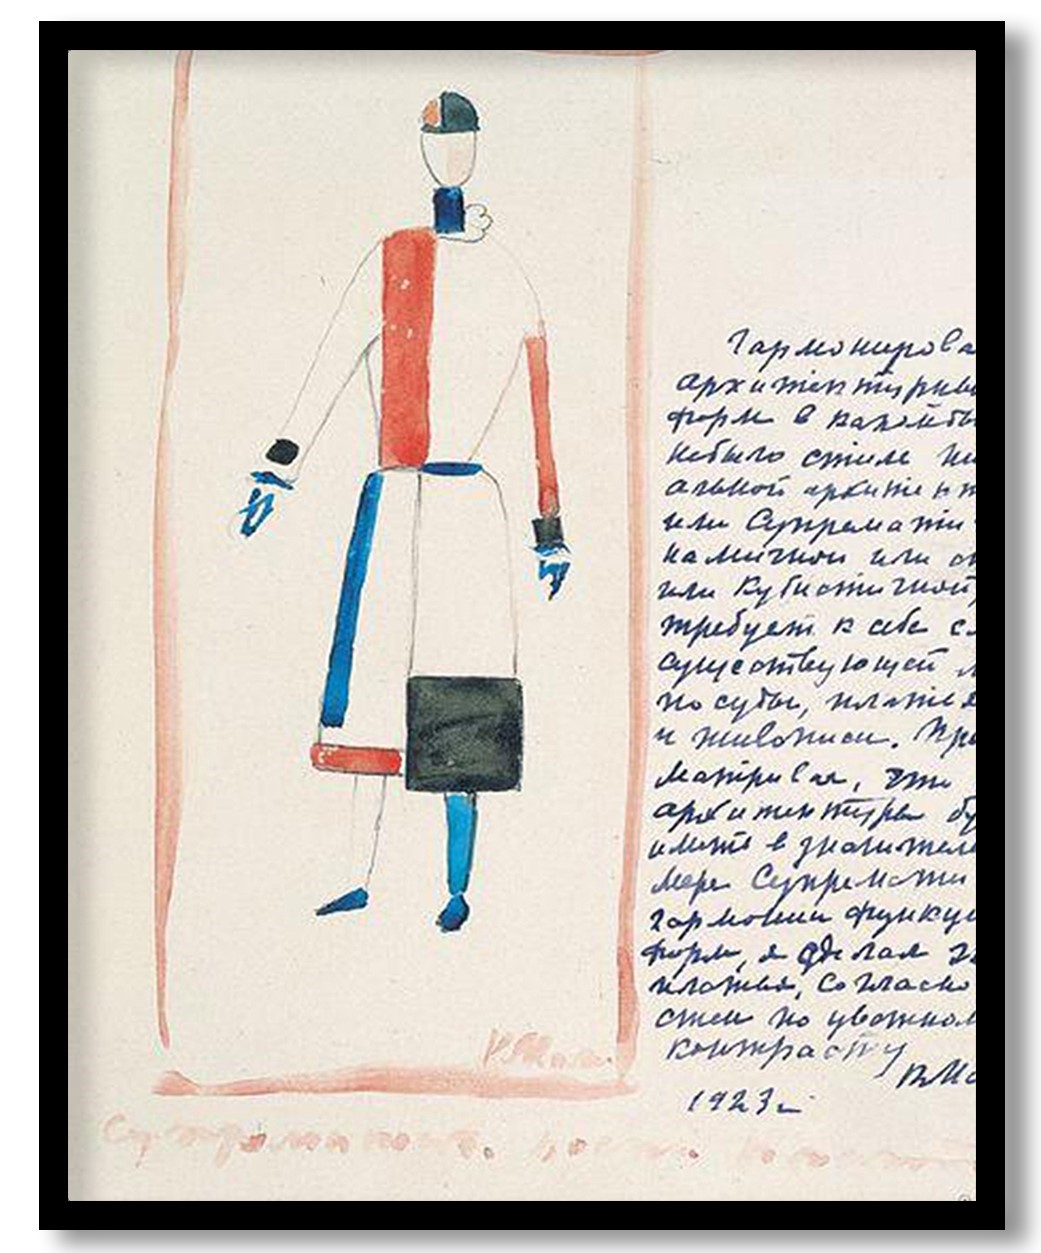 К Мал
Гармонирова
архитектурны
форм в какомбы
небыло стиле ин
альной архитект
или Супремати
намичной или ст
или Кубистичной,
требует к себе с
существующей
посуды, платья
и живописи. Пре
матривая, что
архитектура бу
иметь в значителе
мере Супремати
гармонии функци
форм, я сделал э
платья, согласно
стен по цветном
контрасту
КМа
1923г